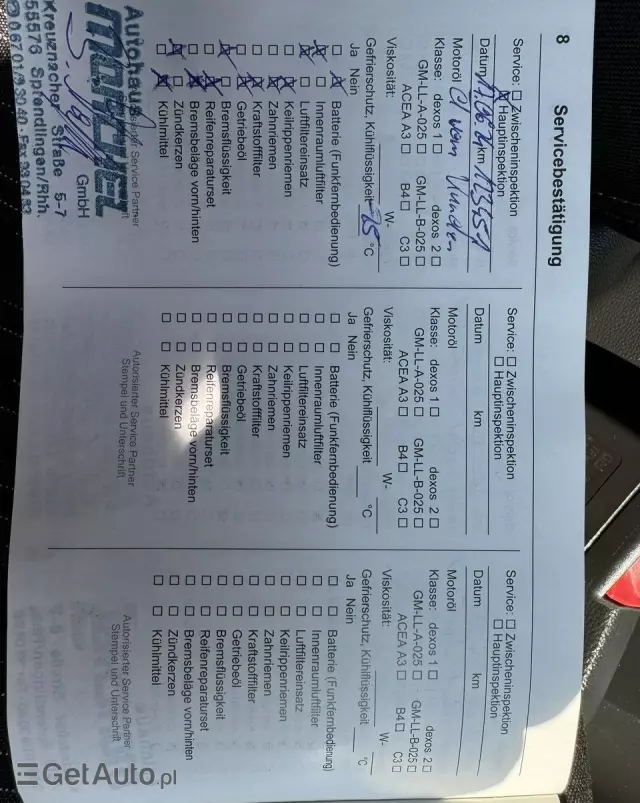 8 Servicebestätigung
Service: ☐ Zwischeninspektion
☒ Hauptinspektion
Datum km 123451
Motoröl Öl vom Kunden
Klasse: dexos 1 ☐ dexos 2 ☐
GM-LL-A-025 ☐ GM-LL-B-025 ☐
ACEA A3 ☐ B4 ☐ C3 ☐
Viskosität: W-
Gefrierschutz, Kühlflüssigkeit -25 °C
Ja Nein
Batterie (Funkfernbedienung)
Innenraumluftfilter
Luftfiltereinsatz
Keilrippenriemen
Zahnriemen
Kraftstofffilter
Getriebeöl
Bremsflüssigkeit
Reifenreparaturset
Bremsbeläge vorn/hinten
Zündkerzen
Kühlmittel
Service Partner
Autohaus
GmbH
Kreuznacher Straße 5-7
55576 Sprendlingen/Rhh.
Service: ☐ Zwischeninspektion
☐ Hauptinspektion
Datum km
Motoröl
Klasse: dexos 1 ☐ dexos 2 ☐
GM-LL-A-025 ☐ GM-LL-B-025 ☐
ACEA A3 ☐ B4 ☐ C3 ☐
Viskosität: W-
Gefrierschutz, Kühlflüssigkeit °C
Ja Nein
☐ ☐ Batterie (Funkfernbedienung)
☐ ☐ Innenraumluftfilter
☐ ☐ Luftfiltereinsatz
☐ ☐ Keilrippenriemen
☐ ☐ Zahnriemen
☐ ☐ Kraftstofffilter
☐ ☐ Getriebeöl
☐ ☐ Bremsflüssigkeit
☐ ☐ Reifenreparaturset
☐ ☐ Bremsbeläge vorn/hinten
☐ ☐ Zündkerzen
☐ ☐ Kühlmittel
Autorisierter Service Partner
Stempel und Unterschrift
Service: ☐ Zwischeninspektion
☐ Hauptinspektion
Datum km
Motoröl
Klasse: dexos 1 ☐ dexos 2 ☐
GM-LL-A-025 ☐ GM-LL-B-025 ☐
ACEA A3 ☐ B4 ☐ C3 ☐
Viskosität: W-
Gefrierschutz, Kühlflüssigkeit °C
Ja Nein
☐ ☐ Batterie (Funkfernbedienung)
☐ ☐ Innenraumluftfilter
☐ ☐ Luftfiltereinsatz
☐ ☐ Keilrippenriemen
☐ ☐ Zahnriemen
☐ ☐ Kraftstofffilter
☐ ☐ Getriebeöl
☐ ☐ Bremsflüssigkeit
☐ ☐ Reifenreparaturset
☐ ☐ Bremsbeläge vorn/hinten
☐ ☐ Zündkerzen
☐ ☐ Kühlmittel
Autorisierter Service Partner
Stempel und Unterschrift
GetAuto.pl